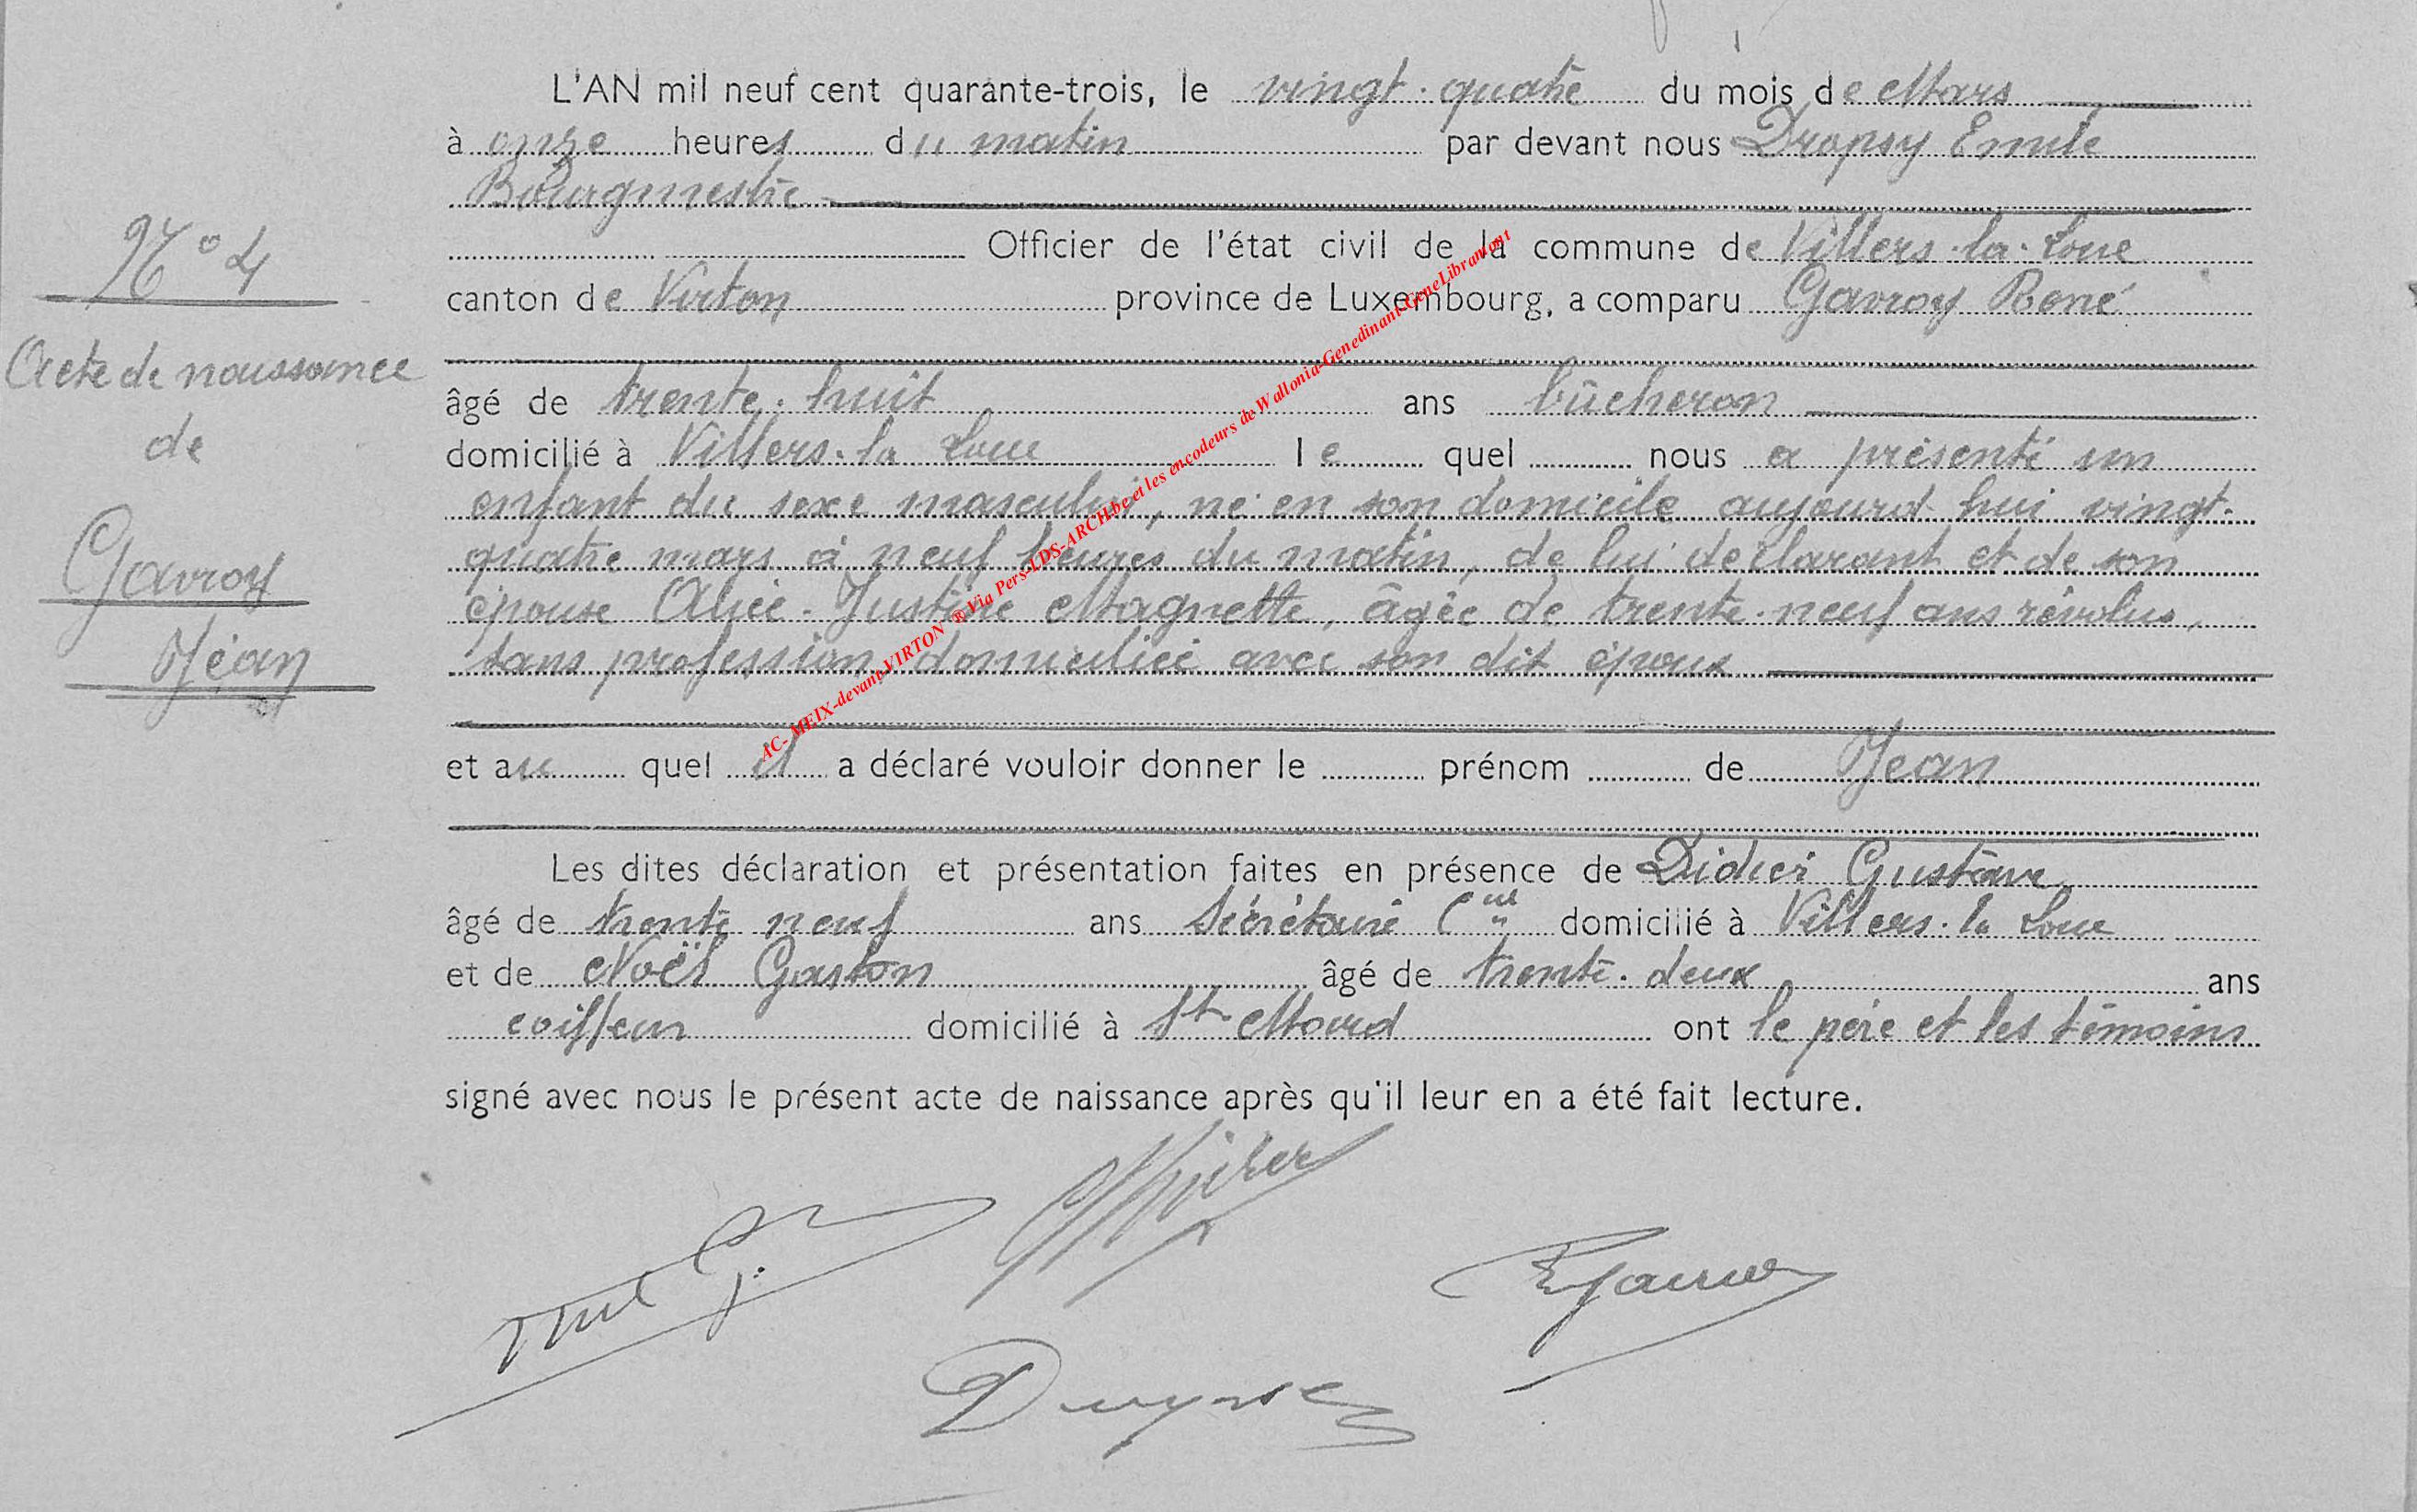 L'AN mil neuf cent quarante-trois, le vingt-quatre du mois de Mars
à onze heures du matin par devant nous Dropsy Emile
Bourgmestre
N° 4
Officier de l'état civil de la commune de Villers-la-Loue
canton de Virton province de Luxembourg, a comparu Gavroy René
Acte de naissance
de
Gavroy
Jean
âgé de trente-huit ans bûcheron
domicilié à Villers-la Loue le quel nous a présenté un
enfant du sexe masculin, né en son domicile aujourd'hui vingt-
quatre mars à neuf heures du matin, de lui déclarant et de son
épouse Alice-Justine Magnette, âgée de trente-neuf ans révolus,
sans profession, domiciliée avec son dit époux
et au quel il a déclaré vouloir donner le prénom de Jean
Les dites déclaration et présentation faites en présence de Didier Gustave
âgé de trente neuf ans Secrétaire Cal domicilié à Villers-la Loue
et de Noël Gaston âgé de trente-deux ans
coiffeur domicilié à St Mard ont le père et les témoins
signé avec nous le présent acte de naissance après qu'il leur en a été fait lecture.
AC- MEIX-devant-VIRTON ® Via Pers-LDS-ARCH.be et les encodeurs de Wallonia-Genedinant-GeneLibramont